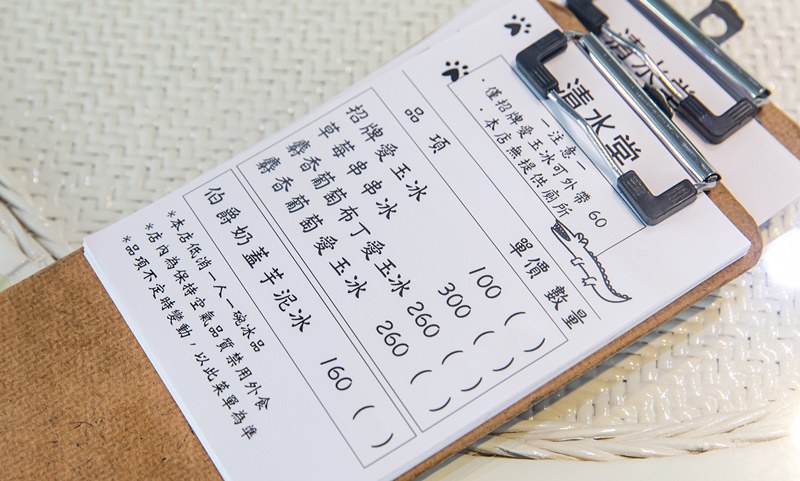 清水堂
清水堂
-注意-
·僅招牌愛玉冰可外帶 60
·本店無提供廁所
品項 單價 數量
招牌愛玉冰 100 ( )
草莓串串冰 300 ( )
麝香葡萄布丁愛玉冰 260 ( )
麝香葡萄愛玉冰 260 ( )
伯爵奶蓋芋泥冰 160 ( )
※本店低消一人一碗冰品
※店內為保持空氣品質禁用外食
※品項不定時變動,以此菜單為準